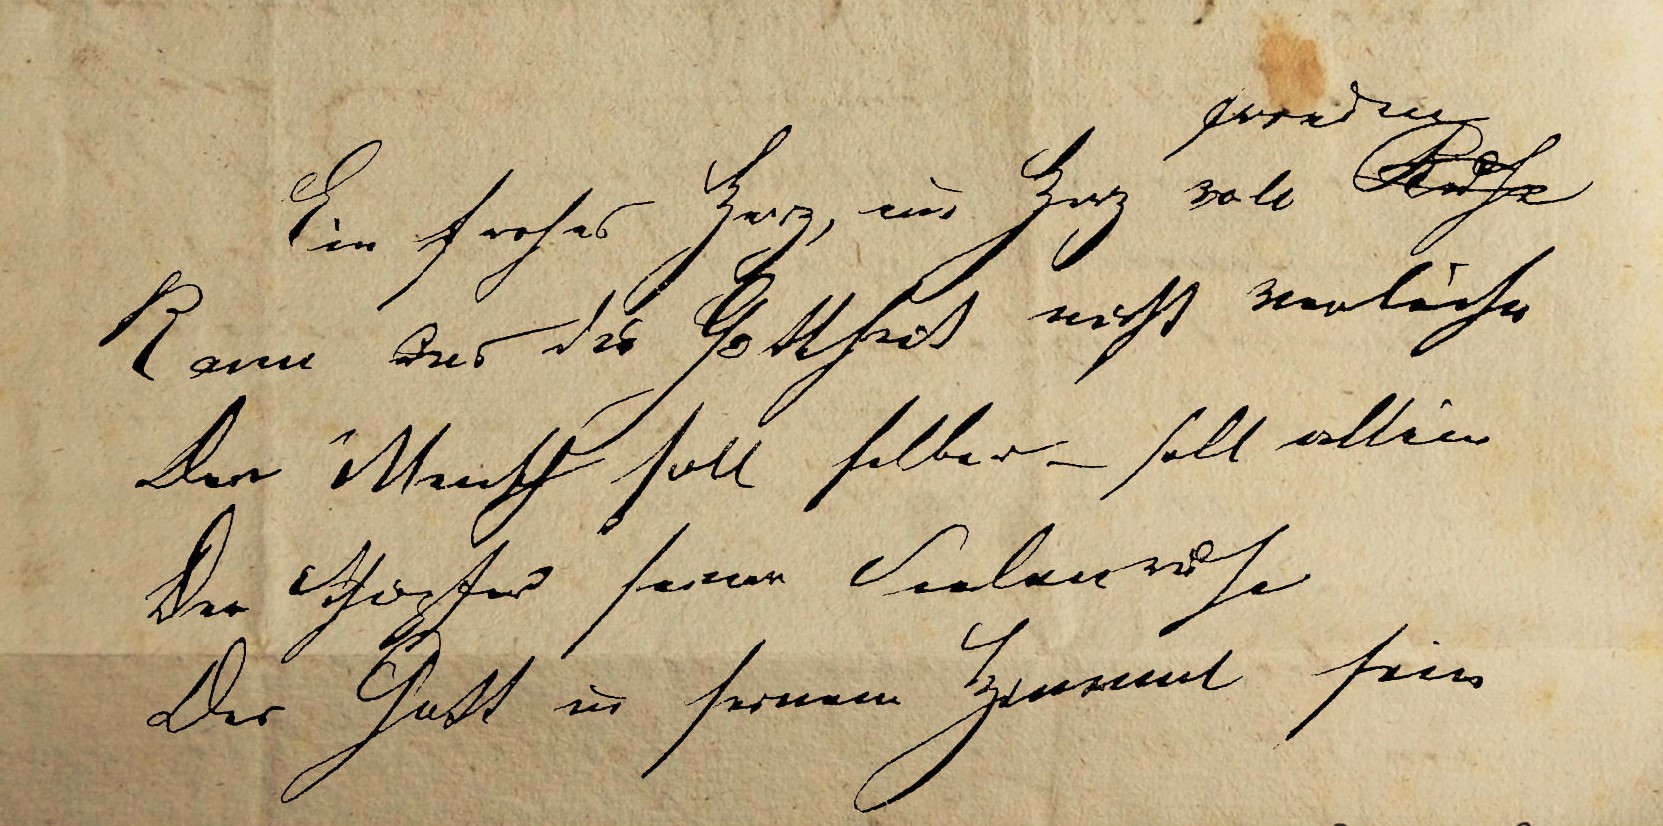 Ein frohes Herz, ein Herz voll Ruhe
Kann uns die Gottheit nicht verleihn
Der Mensch soll selber – soll allein
Der Schöpfer seiner Seelenruhe
Der Gott in seinem Himmel sein